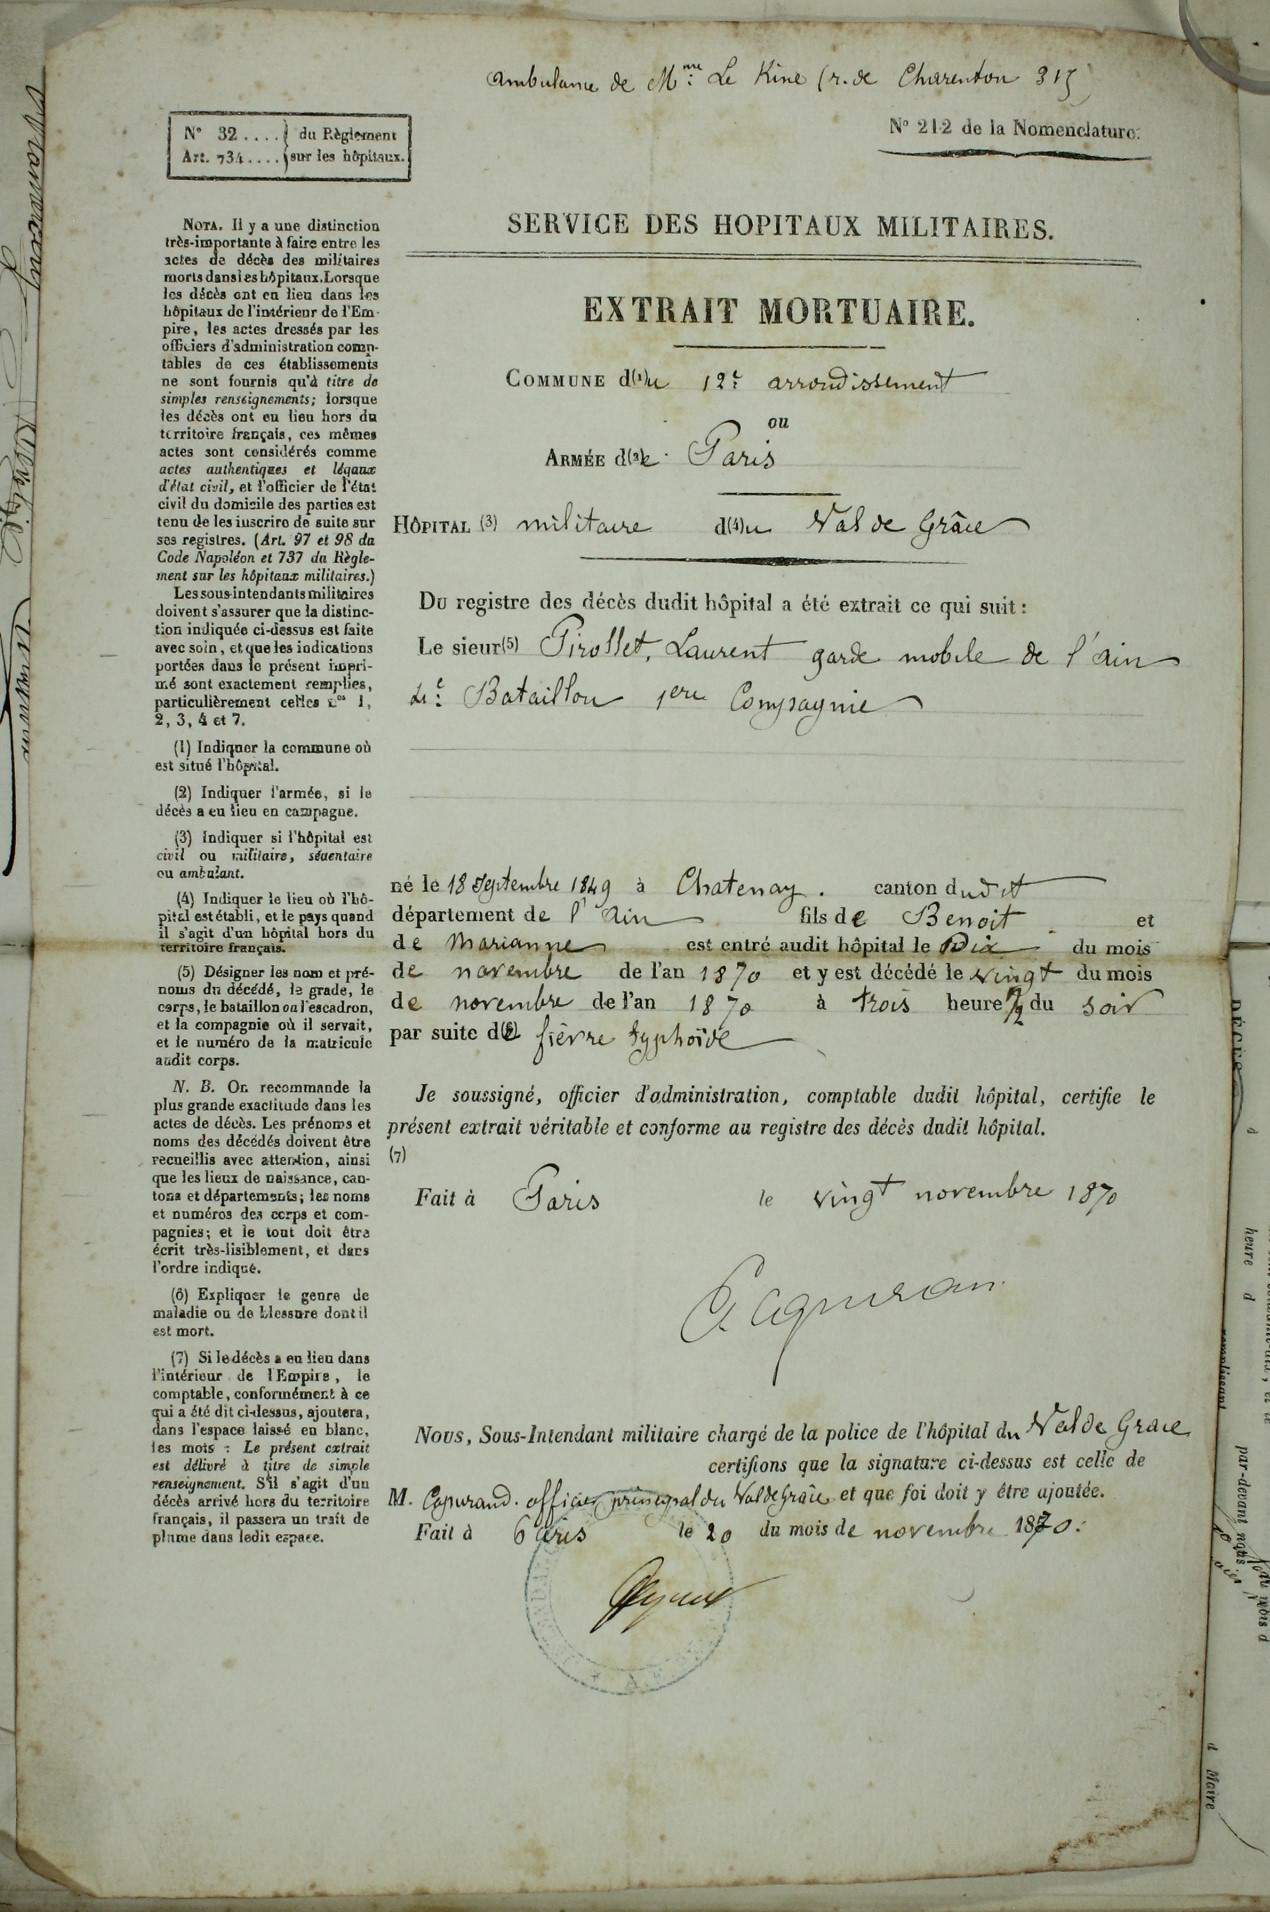 Ambulance de M.me Le Kine (r. de Charenton 315)
N° 32 .... du Règlement
Art. 734 .... sur les hôpitaux.
N° 212 de la Nomenclature.
SERVICE DES HOPITAUX MILITAIRES.
EXTRAIT MORTUAIRE.
COMMUNE d(1)u 12e arrondissement
ou
ARMÉE d(2)e Paris
HÔPITAL (3) militaire d(4)u Val de Grâce
Du registre des décès dudit hôpital a été extrait ce qui suit :
Le sieur(5) Pirollet, Laurent garde mobile de l'Ain
4e Bataillon 1ere Compagnie
né le 18 Septembre 1849 à Chatenay. canton dudit
département de l'Ain fils de Benoit et
de Marianne est entré audit hôpital le Dix du mois
de novembre de l'an 1870 et y est décédé le vingt du mois
de novembre de l'an 1870 à trois heure 1/2 du soir
par suite d(6)e fièvre typhoïde
Je soussigné, officier d'administration, comptable dudit hôpital, certifie le
présent extrait véritable et conforme au registre des décès dudit hôpital.
(7)
Fait à Paris le vingt novembre 1870
NOUS, Sous-Intendant militaire chargé de la police de l'hôpital du Val de Grace
certifions que la signature ci-dessus est celle de
M. officier principal du Val de Grâce et que foi doit y être ajoutée.
Fait à Paris le 20 du mois de novembre 1870.
NOTA. Il y a une distinction
très-importante à faire entre les
actes de décès des militaires
morts dans les hôpitaux. Lorsque
les décès ont eu lieu dans les
hôpitaux de l'intérieur de l'Em-
pire, les actes dressés par les
officiers d'administration comp-
tables de ces établissements
ne sont fournis qu'à titre de
simples renseignements; lorsque
les décès ont eu lieu hors du
territoire français, ces mêmes
actes sont considérés comme
actes authentiques et légaux
d'état civil, et l'officier de l'état
civil du domicile des parties est
tenu de les inscrire de suite sur
ses registres. (Art. 97 et 98 du
Code Napoléon et 737 du Règle-
ment sur les hôpitaux militaires.)
Les sous-intendants militaires
doivent s'assurer que la distinc-
tion indiquée ci-dessus est faite
avec soin, et que les indications
portées dans le présent impri-
mé sont exactement remplies,
particulièrement celles nos 1,
2, 3, 4 et 7.
(1) Indiquer la commune où
est situé l'hôpital.
(2) Indiquer l'armée, si le
décès a eu lieu en campagne.
(3) Indiquer si l'hôpital est
civil ou militaire, sédentaire
ou ambulant.
(4) Indiquer le lieu où l'hô-
pital est établi, et le pays quand
il s'agit d'un hôpital hors du
territoire français.
(5) Désigner les nom et pré-
noms du décédé, le grade, le
corps, le bataillon ou l'escadron,
et la compagnie où il servait,
et le numéro de la matricule
audit corps.
N. B. On recommande la
plus grande exactitude dans les
actes de décès. Les prénoms et
noms des décédés doivent être
recueillis avec attention, ainsi
que les lieux de naissance, can-
tons et départements; les noms
et numéros des corps et com-
pagnies; et le tout doit être
écrit très-lisiblement, et dans
l'ordre indiqué.
(6) Expliquer le genre de
maladie ou de blessure dont il
est mort.
(7) Si le décès a eu lieu dans
l'intérieur de l'Empire, le
comptable, conformément à ce
qui a été dit ci-dessus, ajoutera,
dans l'espace laissé en blanc,
les mots : Le présent extrait
est délivré à titre de simple
renseignement. S'il s'agit d'un
décès arrivé hors du territoire
français, il passera un trait de
plume dans ledit espace.
DÉCÈS
heure d
par-devant nous
d Maire